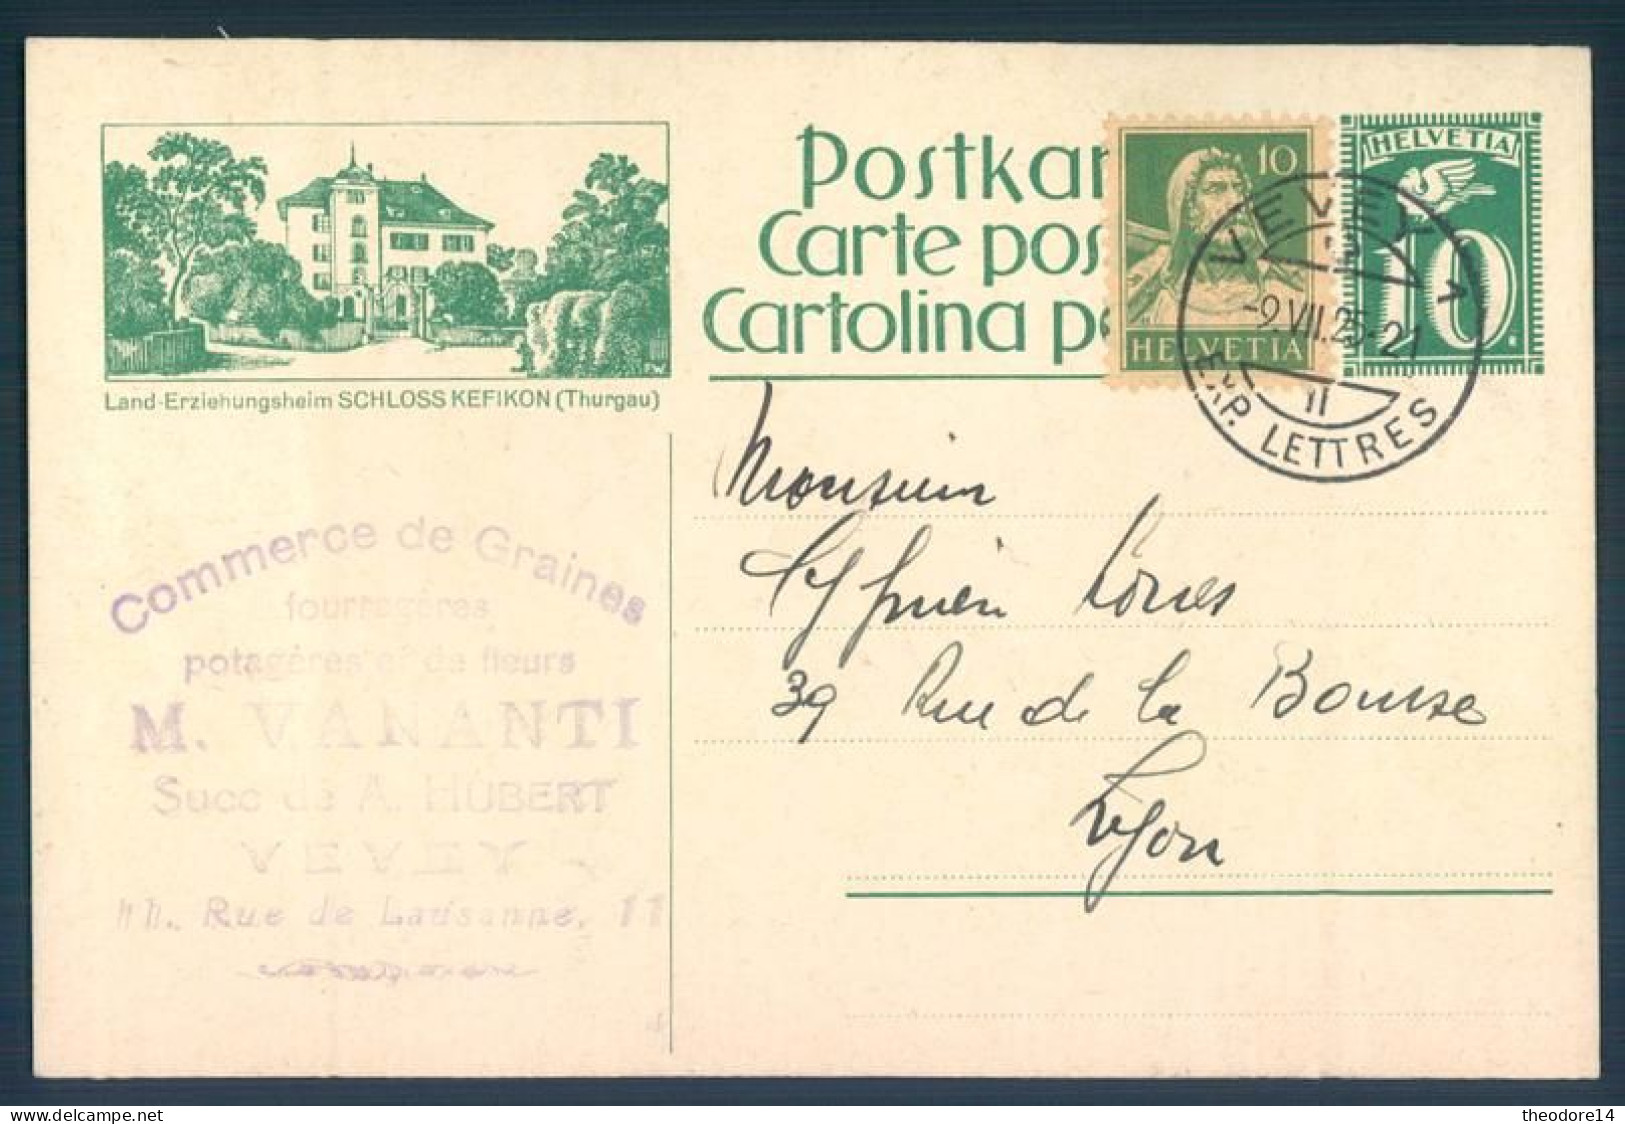 Postkar
Carte pos
Cartolina p
10
HELVETIA
HELVETIA
10
VEVEY
-9.VII.25-21
II
EXP. LETTRES
Land-Erziehungsheim SCHLOSS KEFIKON (Thurgau)
Monsieur
39 Rue de la Bourse
Lyon
Commerce de Graines
fourragères
potagères et de fleurs
M. VANANTI
Succ de A. HUBERT
VEVEY
11. Rue de Lausanne, 11
theodore14